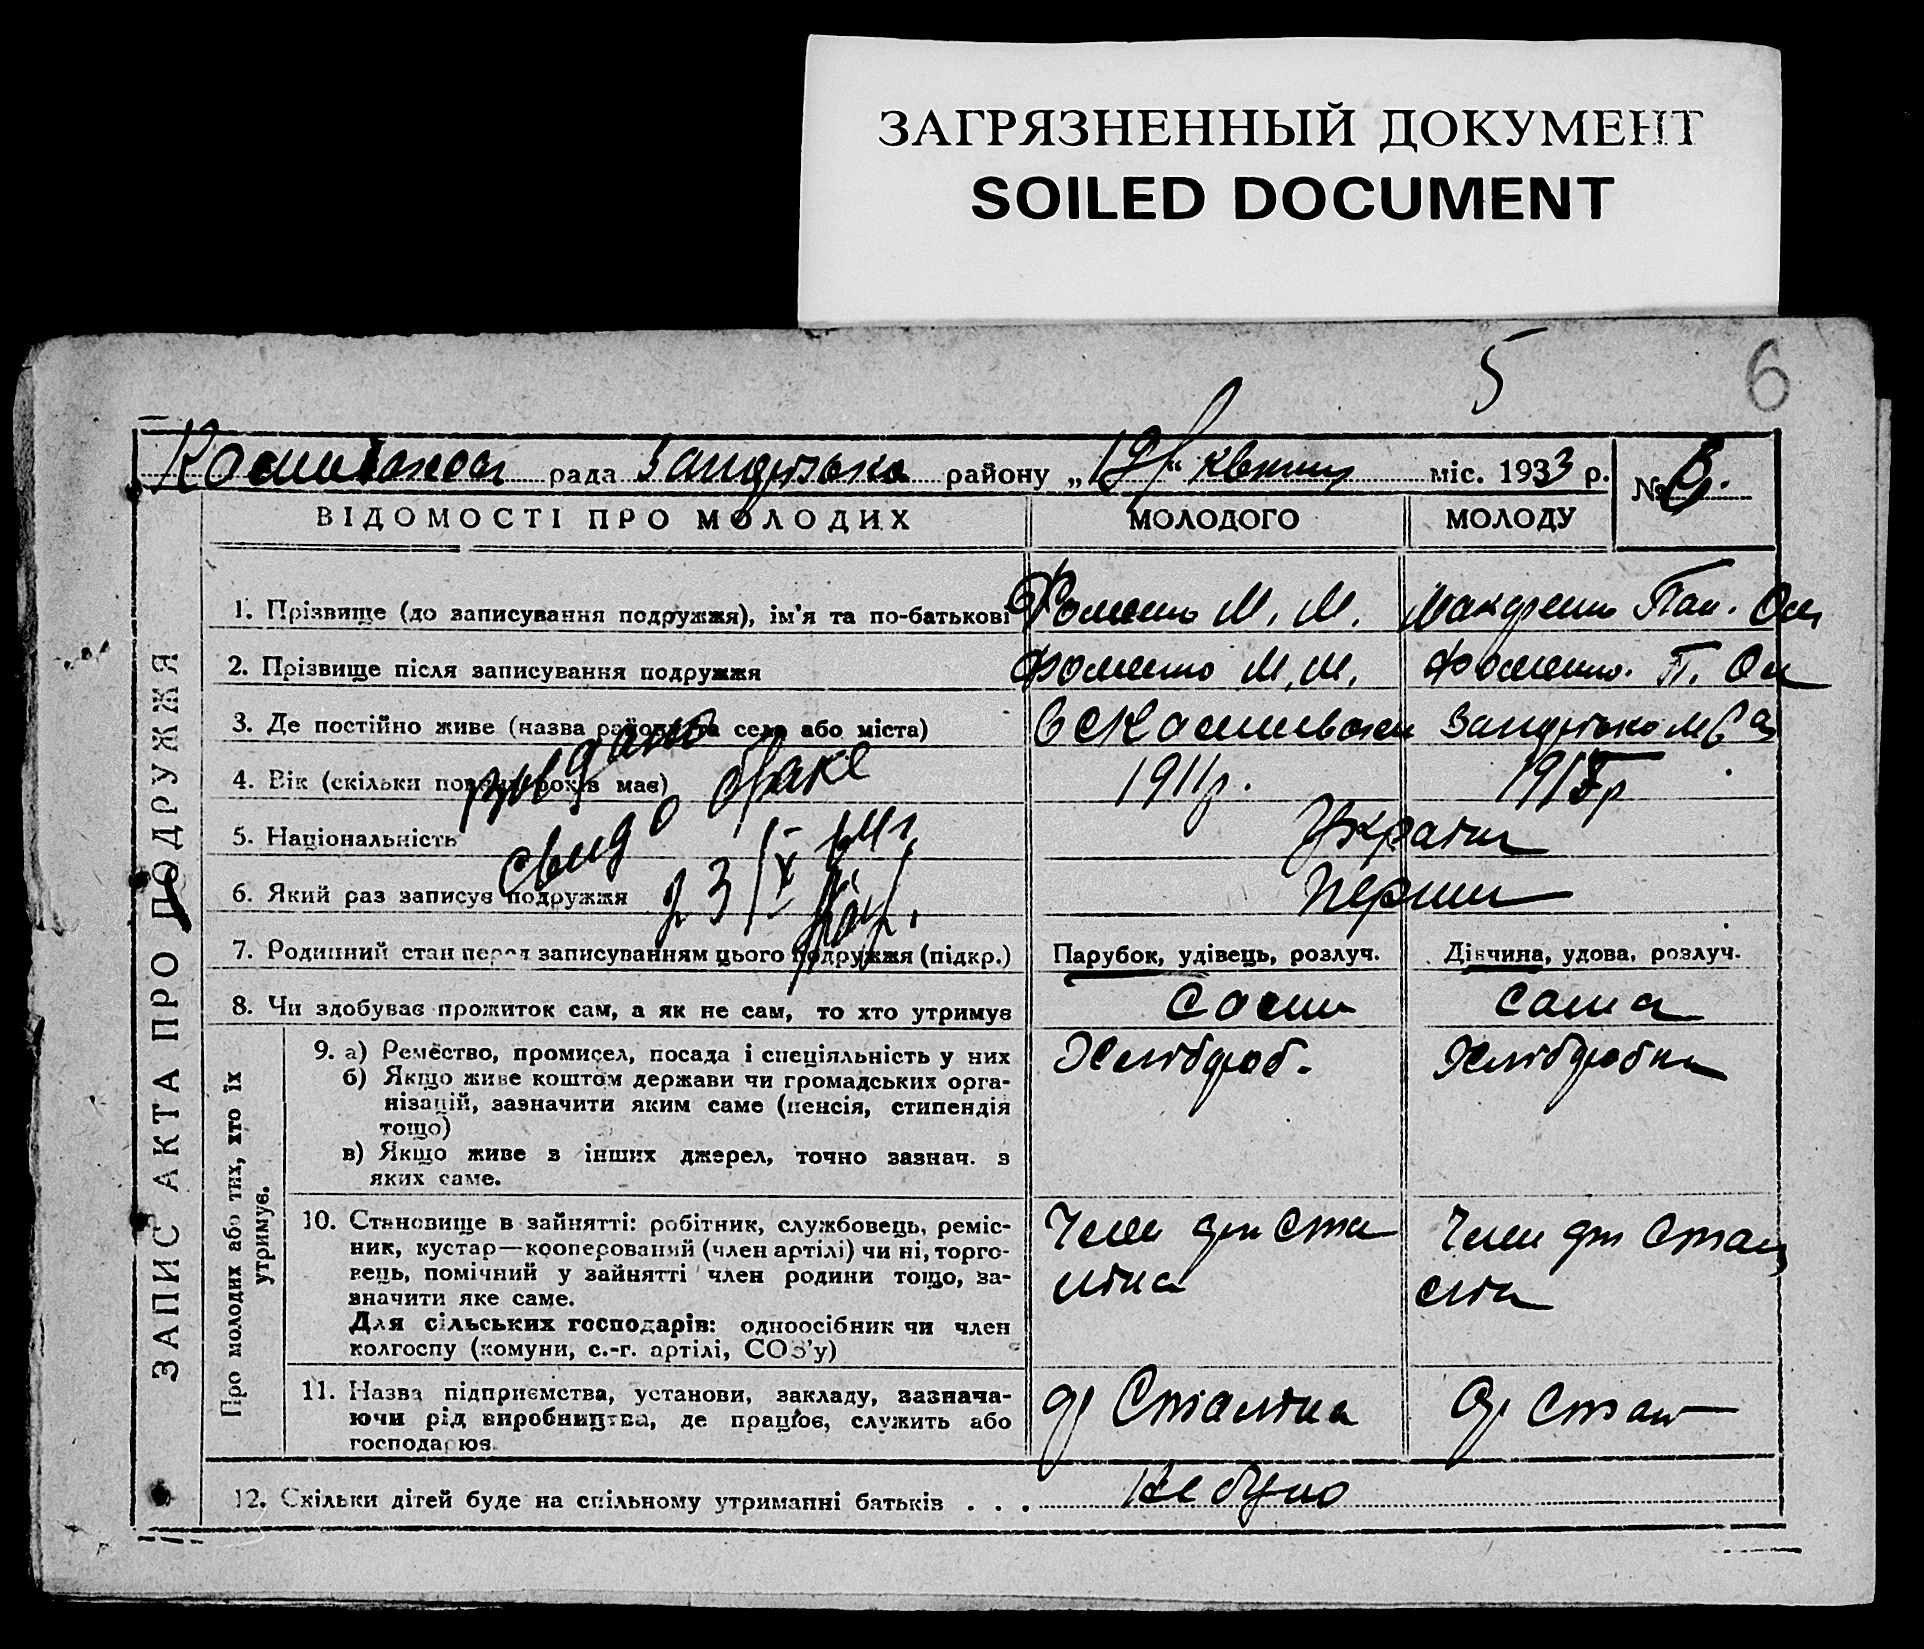 ЗАГРЯЗНЕННЫЙ ДОКУМЕНТ
SOILED DOCUMENT
5
6
рада району „19“ міс. 1933 р.
№
ЗАПИС АКТА ПРО ПОДРУЖЖЯ
ВІДОМОСТІ ПРО МОЛОДИХ МОЛОДОГО МОЛОДУ
1. Прізвище (до записування подружжя), ім'я та по-батькові Фоменко М. М.
2. Прізвище після записування подружжя Фоменко М. М. Фоменко. П.
3. Де постійно живе (назва району та села або міста)
4. Вік (скільки повних років має) 1911р.
о браке
5. Національність Україн
6. Який раз записує подружжя перший
7. Родинний стан перед записуванням цього подружжя (підкр.) Парубок, удівець, розлуч. Дівчина, удова, розлуч.
8. Чи здобуває прожиток сам, а як не сам, то хто утримує сам сама
Про молодих або тих, хто їх
утримує.
9. а) Ремество, промисел, посада і спеціяльність у них Хлібороб. Хлібробка
б) Якщо живе коштом держави чи громадських орга-
нізацій, зазначити яким саме (пенсія, стипендія
тощо)
в) Якщо живе з інших джерел, точно зазнач. з
яких саме.
10. Становище в зайнятті: робітник, службовець, реміс-
ник, кустар—кооперований (член артілі) чи ні, торго-
вець, помічний у зайнятті член родини тощо, за-
значити яке саме.
Для сільських господарів: одноосібник чи член
колгоспу (комуни, с.-г. артілі, СОЗ'у)
11. Назва підприємства, установи, закладу, зазнача-
ючи рід виробництва, де працює, служить або
господарює. Сталіна
12. Скільки дітей буде на спільному утриманні батьків . . . Не було